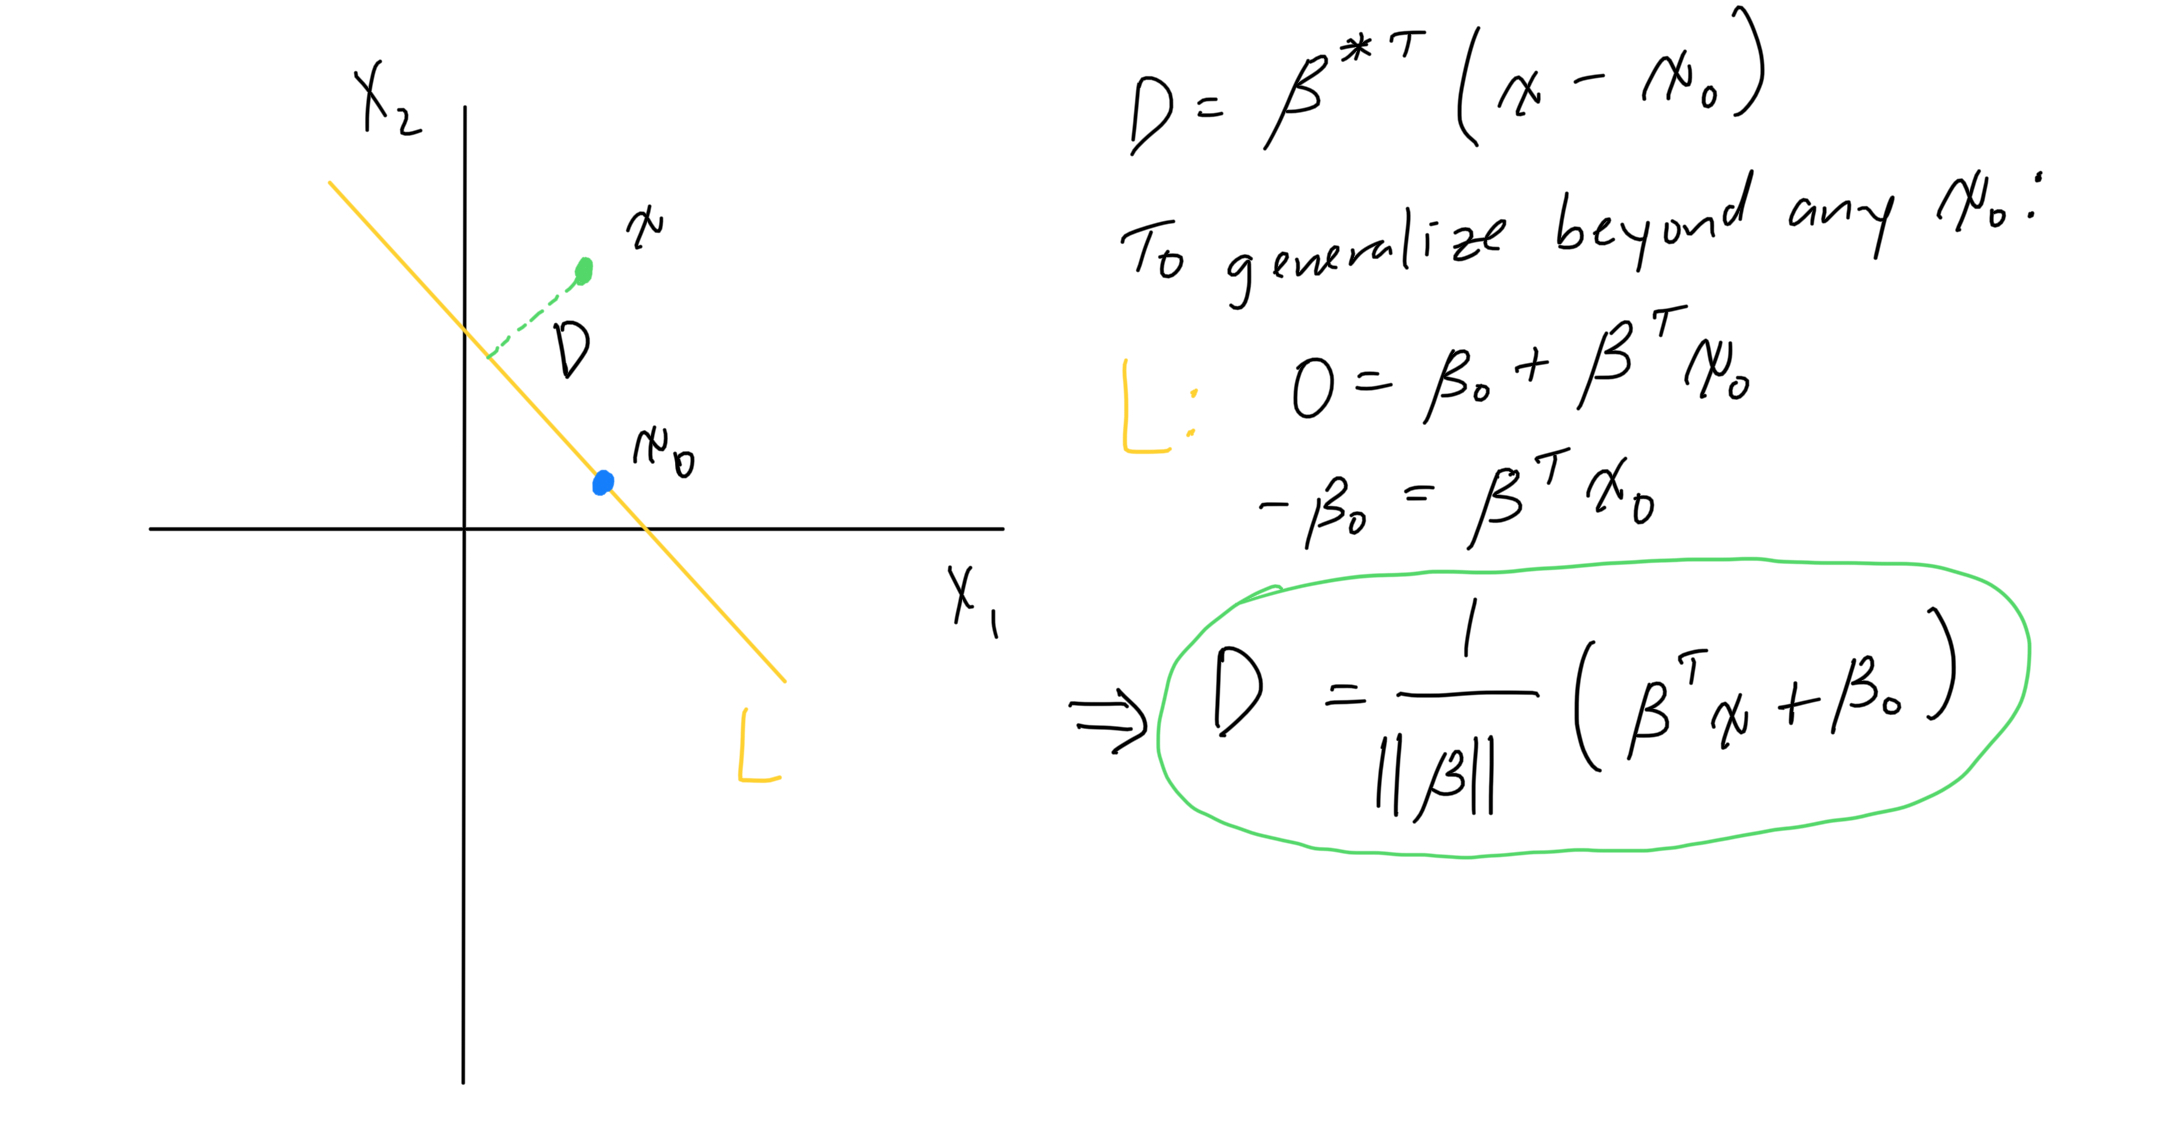 X₂
x
D
x₀
X₁
L
D = β*ᵀ (x − x₀)
To generalize beyond any x₀:
L: 0 = β₀ + βᵀ x₀
−β₀ = βᵀ x₀
⇒ D = 1/||β|| (βᵀx + β₀)